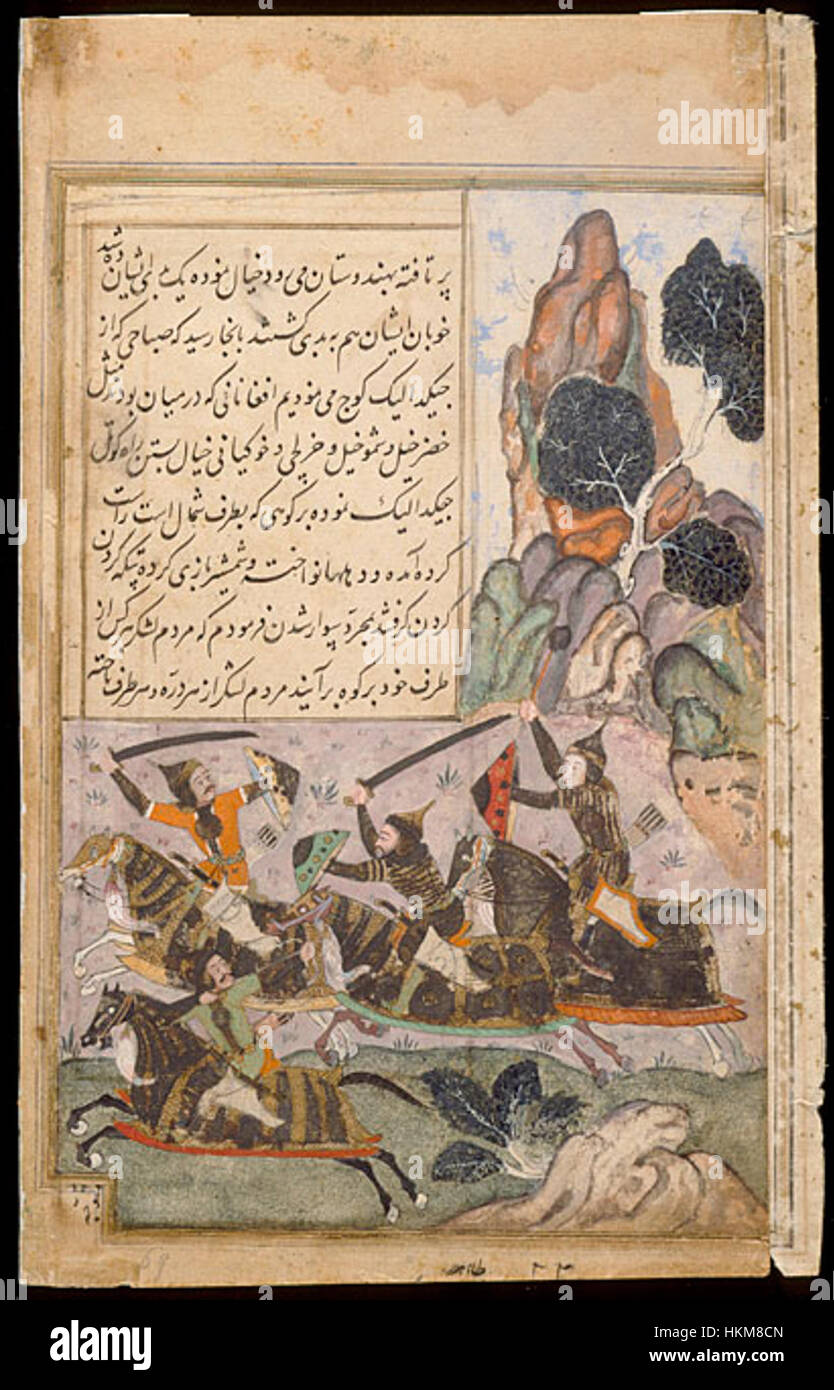 پر تافته بهندوستان می رود خیال نموده یک برای ایشان ده شد
خوبان ایشان هم به بدی گشتند بانجا رسید که صباحی که از
جیکدالیک کوج می نمودیم افغانانی که در میان بودند مثل
خضر خیل و شمو خیل و خرلجی و خوکیانی خیال بستن راه کوتل
جیکدالیک نموده بر کوهی که بطرف شمال است راست
کرده آمده و دهلها نواخته و شمشیر بازی کرده تیکه کردن
کردن گرفتند بمجرد سوار شدن فرمودم که مردم لشکر هر کس از
طرف خود بر کوه برآیند مردم لشکر از هر دره و هر طرف تاخته
alamy
alamy
Image ID: HKM8CN
www.alamy.com